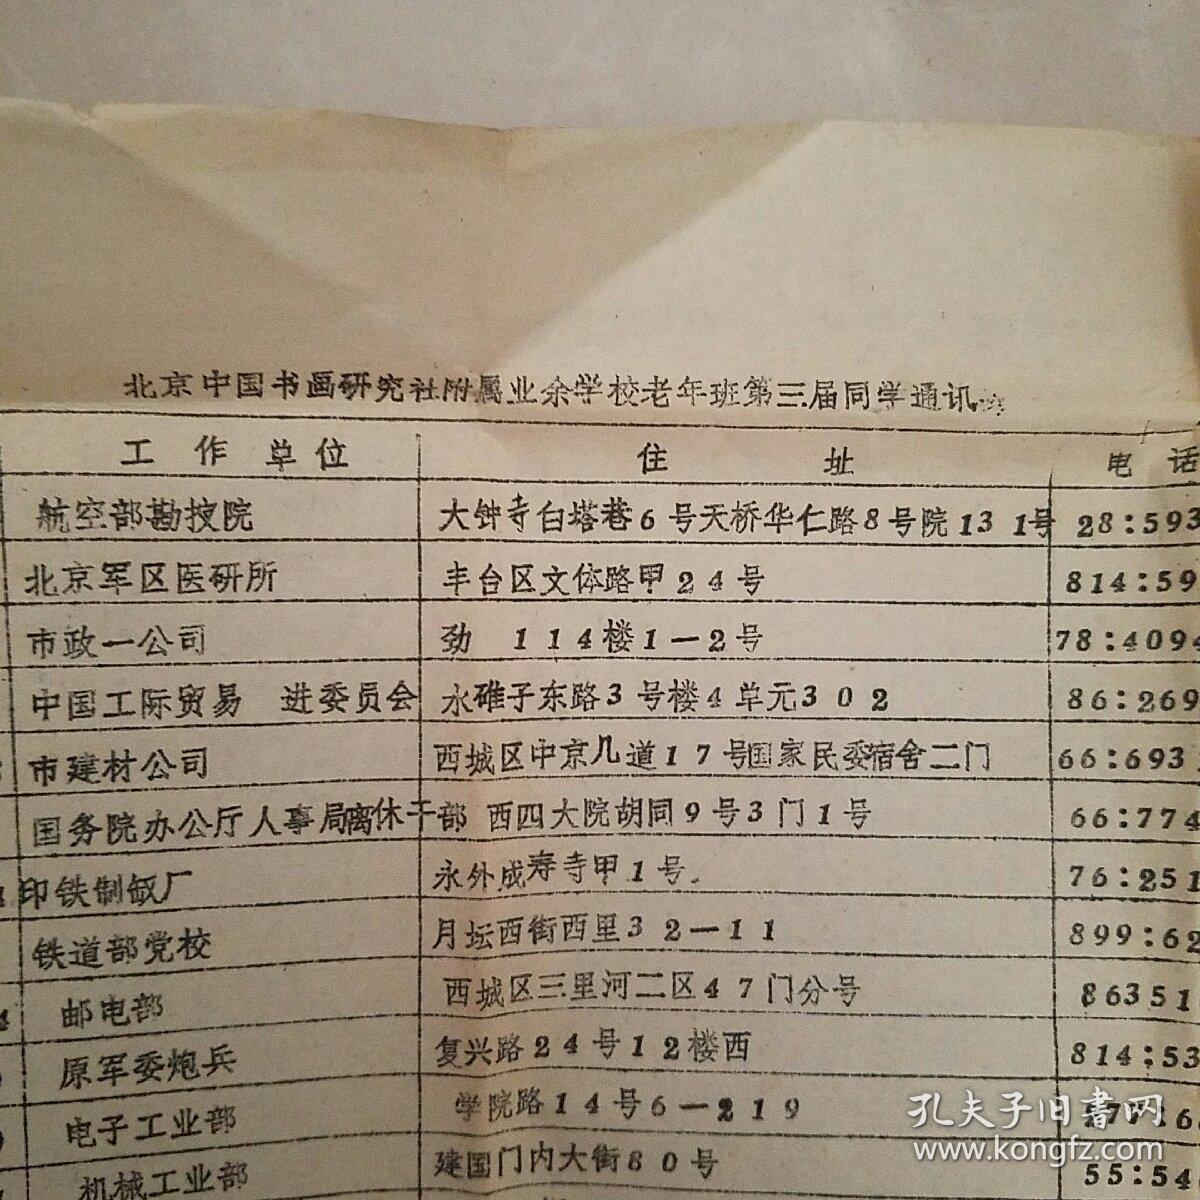 北京中国书画研究社附属业余学校老年班第三届同学通讯
工作单位 住址 电话
航空部勘技院 大钟寺白塔巷6号天桥华仁路8号院131号 28:593
北京军区医研所 丰台区文体路甲24号 814:59
市政一公司 劲 114楼1-2号 78:4094
中国工际贸易 进委员会 永碓子东路3号楼4单元302 86:269
市建材公司 西城区中京几道17号国家民委宿舍二门 66:693
国务院办公厅人事局离休干部 西四大院胡同9号3门1号 66:774
印铁制缸厂 永外成寿寺甲1号. 76:251
铁道部党校 月坛西街西里32-11 899:62
邮电部 西城区三里河二区47门分号 86351
原军委炮兵 复兴路24号12楼西 814:53
电子工业部 学院路14号6-219 277:6
机械工业部 建国门内大街80号 55:54
孔夫子旧书网
www.kongfz.com